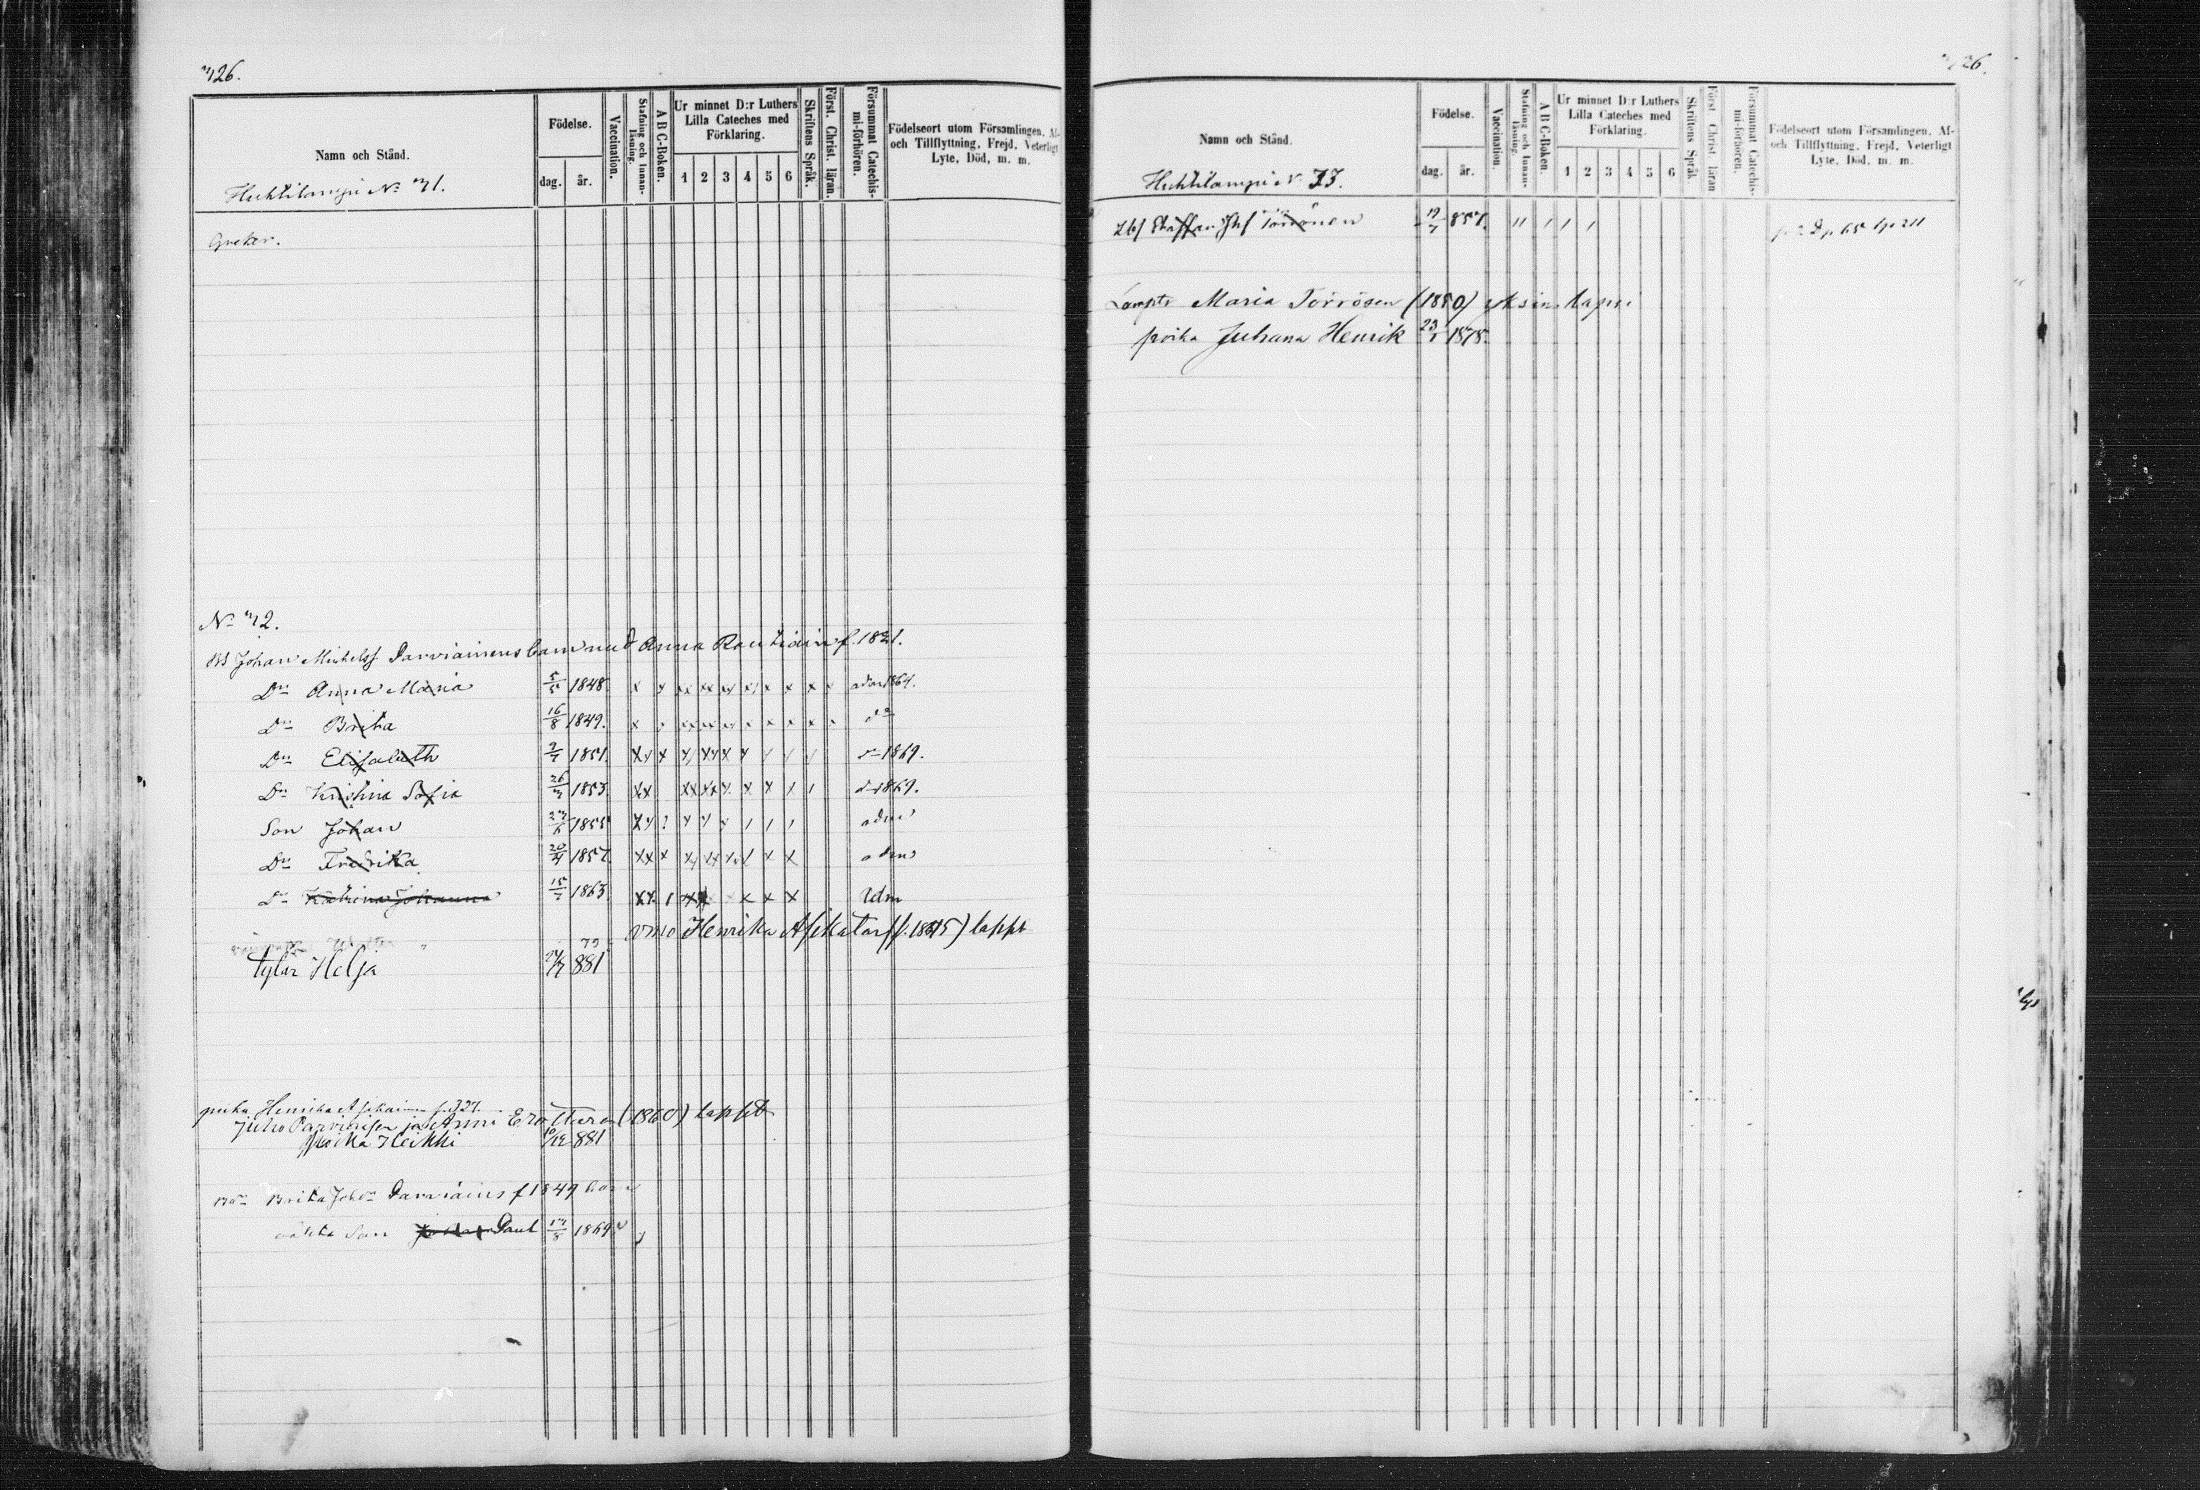 726.
Namn och Stånd.
Födelse.
dag.
år.
Vaccination.
Stafning och Innan-läsning.
A B C-Boken.
Ur minnet D:r Luthers Lilla Cateches med Förklaring.
1 2 3 4 5 6
Skriftens Språk.
Först. Christ. läran.
Försummat Catechis-mi-förhören.
Födelseort utom Församlingen, Af- och Tillflyttning, Frejd, Veterligt Lyte, Död, m. m.
Huhtilampi No 71.
Greker.
No 72.
Johan Michelss. Parviainens barn med Anna Rautiain f. 1821.
Dr Anna Maria 5/5 1848. adm 1864.
Dr Brita 16/8 1849. do
Dr Elisabeth 1851. do 1869.
Dr Kristina Sofia 26/7 1853. d 1869.
Son Johan 1855 adm
Dr Fredrika 1857. adm
Dr Katrina Johanna 15/7 1863. Adm
Henrika Asikatar lapset
tytär Helja 881
Juho Parviaisen ja Anni (1860) lapset
poika Heikki 10/12 881
Brita Johsdr Parviains f 1849 barn
oäkta Son Paul 17/8 1869
726.
Namn och Stånd.
Födelse.
dag.
år.
Vaccination.
Stafning och Innan-läsning.
A B C-Boken.
Ur minnet D:r Luthers Lilla Cateches med Förklaring.
1 2 3 4 5 6
Skriftens Språk
Först. Christ. läran
Försummat Catechis-mi-förhören.
Födelseort utom Församlingen, Af- och Tillflyttning, Frejd, Veterligt Lyte, Död, m. m.
Huhtilampi No 73.
Staffan Törrönen 857.
Maria Törrösen (1850) yksin lapsi
poika Juhana Henrik 23/1 1878.